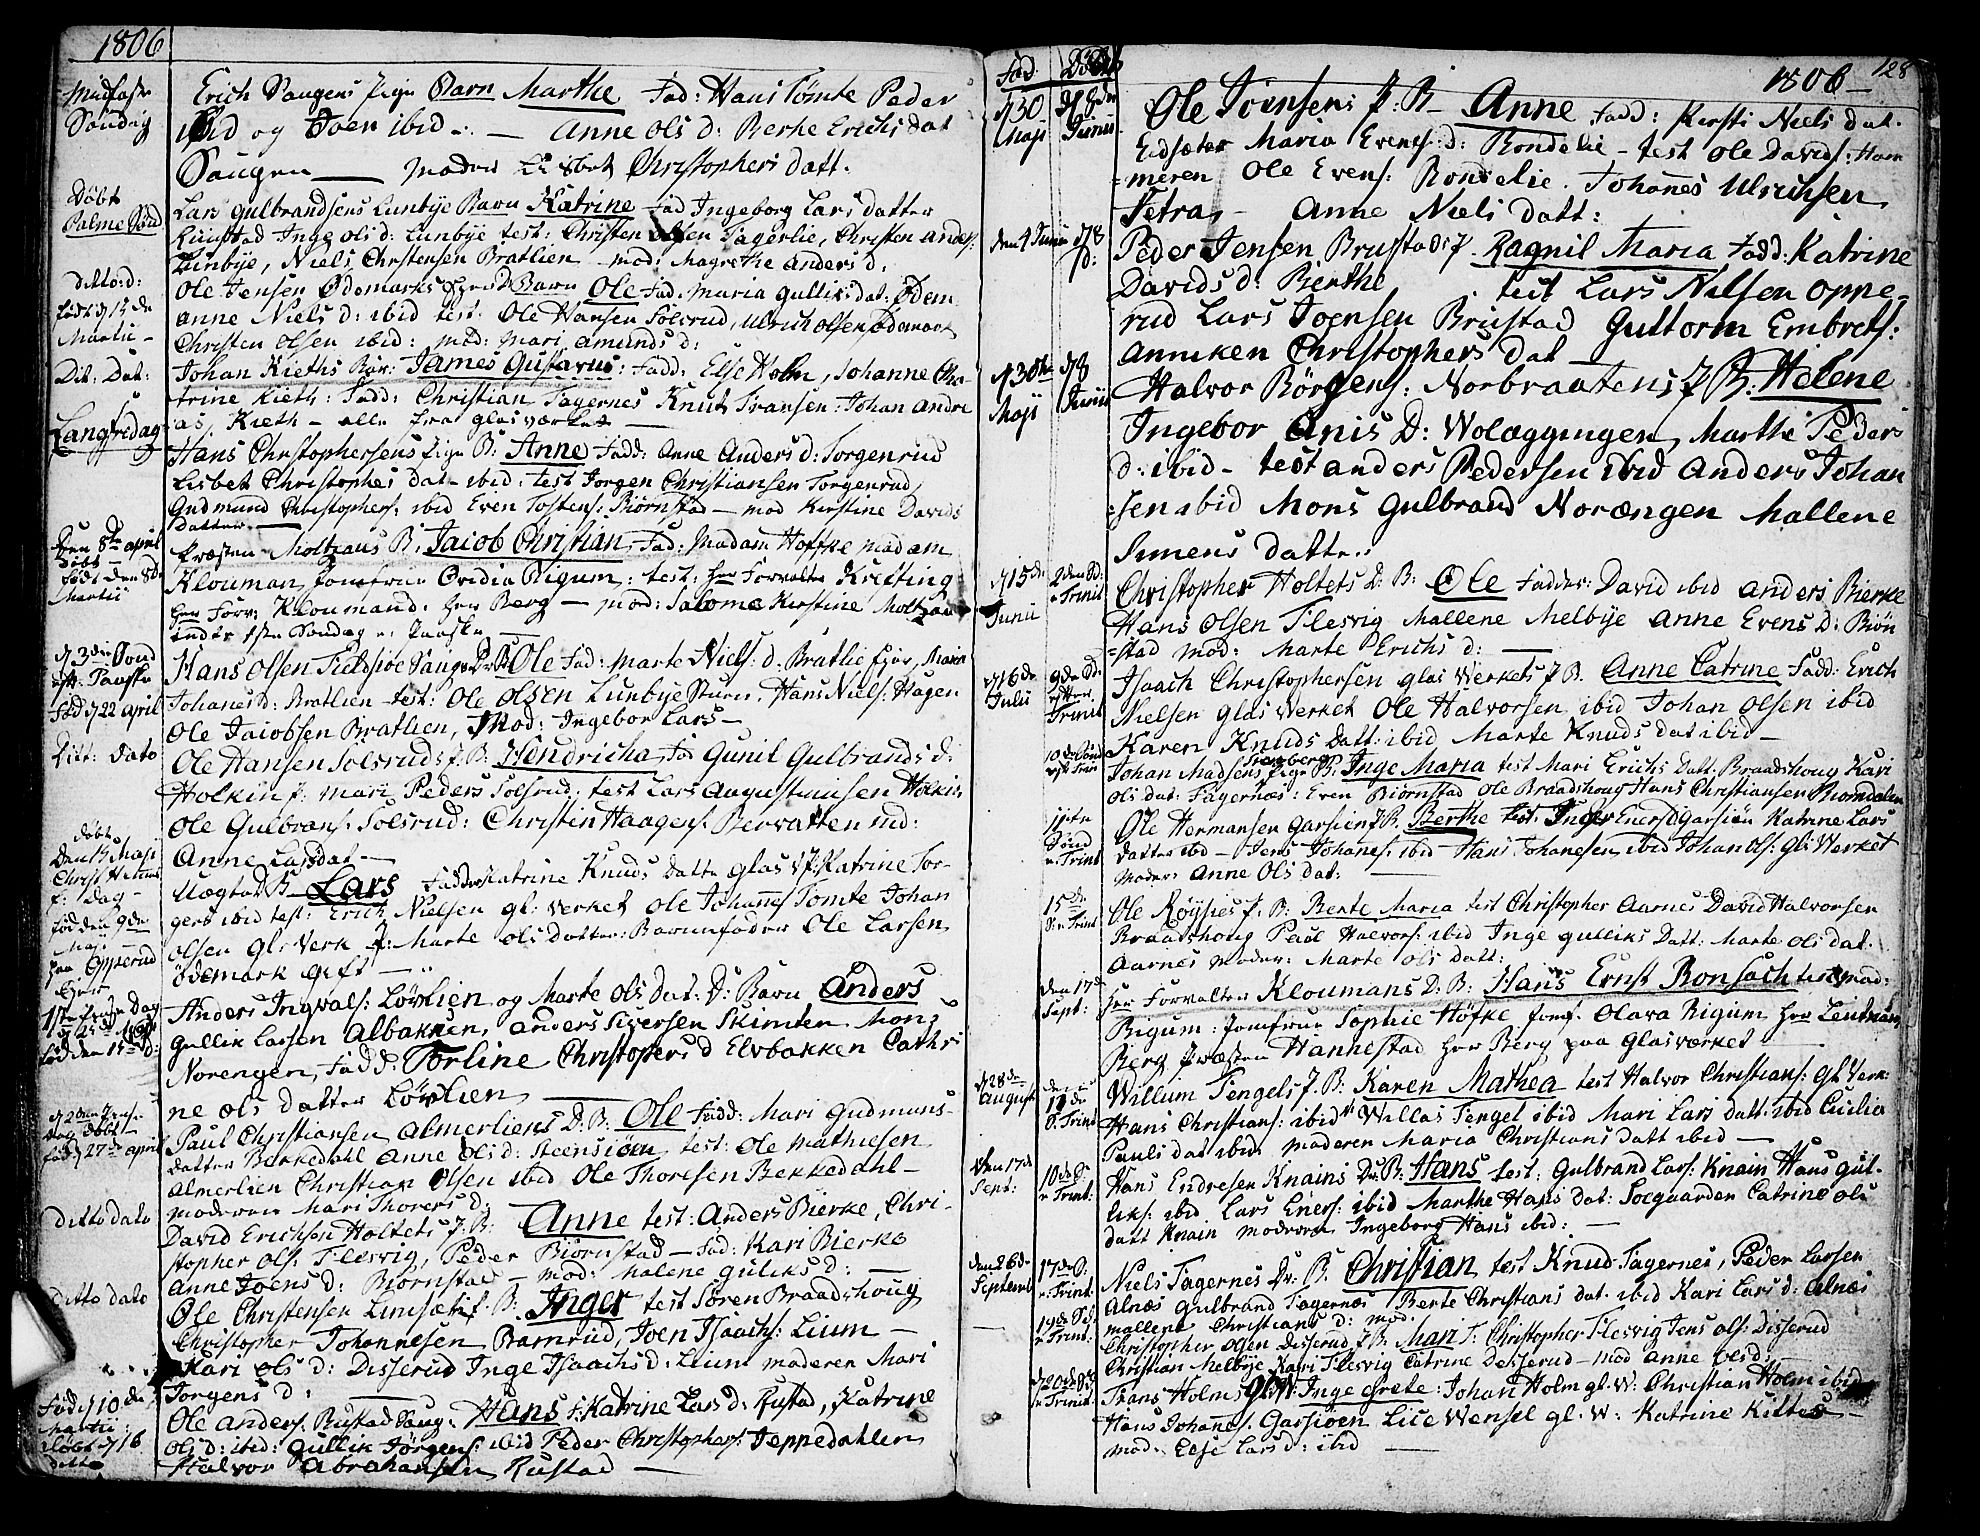 1806
Midfaste
Søndag
Erich Saugens pige Barn Marthe Fad: Hans Tomte Peder
ibid og Joen ibid — Anne Ols d: Berthe Erichs dat
Saugen — moder Lisbet Christophers datt.
Døbt
Palme Sønd
Lars Gulbrandsens Lunbye Barn Katrine Fad Ingeborg Lars datter
Rustad Inge ols d: Lunbye test: Christen olsen Fagerlie, Christen Anders:
Lunbye, Niels Christensen Bratlien mod: Magrethe Anders d.
ditto: d:
født d 15 de
Martii —
Ole Jensen Ødemarks Barn Ole Fad. Maria Gulliks dat: Ødem
anne Niels d: ibid test: Ole Hansen Solsrud, Ulrich olsen ødemark
Christen olsen ibid: mod: Mari Amunds d:
Dit: Dat:
Johan Kieths Bør: James Gustavus: Fadd: Else Holm, Johanne Cha-
trine Kieth: Fadd: Christian Fagernes Knut Fransen: Johan Andre
as, Kieth — alle fra glasværket —
Langfredag
Hans Christophersens pige B: Anne Fadd: Anne Anders d: Torgenrud
Lisbet Christophes dat ibid: test Jorgen Christiansen Torgenrud,
Gudmund Christophers: ibid Even Tostens: Biørnstad — mod Kirstine Davids
datter —
Den 8de april
Døbt —
født den 8d:
Martii
Præsten Moltzaus B: Jacob Christian, Fad: Madam Høffke madam
Klouman Jomfrue Ovidia Rigum: test: Hr Forvalter Krefting
Hr Forv: Kloumand: Hr Berg — mod: Salome Kirstine Moltzau
indtr: 1ste Søndag e: Paaske —
d 3die Sønd
eft: Paaske
Fød d 22 april
Hans Olsen Fieldsjøe Ole Fad: Marte Niels: d: Bratlie
Johanes d: Bratlien test: Ole Olsen Lunbye Stuen, Hans Niels: Hagen
Ole Jacobsen Bratlien, Mod: Ingebor Lars —
Ditt: dato
Ole Hansen Solsruds f. B: Hendricha Fad Gunil Gulbrands d:
Holkin f: Mari Peders Solsrud: test Lars Augustinusen Holkin
Ole Gulbrans: Solsrud: Christen Haagens: Bervatten md:
Anne Larsdat —
døbt
Den 15 Maji
Christi Himmel
f: dag —
fød den 9de
Maji
paa Opperud
Eger
Uægte d B: Lars Fadder Katrine Knuds datt Glas V f: Katrine Tor-
gers ibid test: Erich Nielsen gl: verket Ole Johannes Tomte Johan
olsen gl: Verk f: Marte ols datter: Barnefader Ole Larsen
ødemark gift —
1ste Pintse Dag
den 25 d: Maji
fød den 15 d:
Anders Ingvals: Løvlien og Marte Ols Dat: D: Barn Anders
Gullik Larsen Albakken, Anders Siversen Skimten Mons
Norengen, Fadd: Torline Christophers d Elvbakken Cathri
ne ols datter Løvlien —
d 2den Pintse
dag døbt —
fød d 27de april
Paul Christiansen Almerliens D. B: Ole Fadd: Mari Gudmuns-
datter Berkedahl Anne Ols d: Steensiøen test: Ole Mathiesen
Almerlien Christian Olsen ibid Ole Thoresen Bekkedahl —
moderen Mari Thorers d:
ditto dato
David Erichsen Holtets f: B: Anne test: Anders Bierke, Chri-
stopher ols: Flesvig, Peder Biørnstad — Fad: Kari Bierke
Anne Joens d: Biørnstad — mod: Malene Guliks d: —
ditto dato
Ole Christensen Linsæts f. B: Inger test Søren Braadshoug
Christopher Johannesen Bamrud, Joen Isachs: Lium —
Kari ols d: Disserud Inge Isaachs d: Lium moderen Mari
Jorgens d: —
Fød d 10 de
Martii:
døbt d 16
ditto
Ole Anders: Rustad Saug: Hans f: Katrine Lars d: Rustad, Katrine
Ols d: ibid: Gullik Jørgens: ibid Peder Christophers: Jeppedahlen
Halvor Abrahamsen Rustad —
Fød
Døbt
1806 —
128
d 30
Maji
d 8de
Junii
Ole Joensens f: B — Anne Fadd: Kersti Niels dat.
Eidsæter Maria Evens: d: Rondelie — test Ole Davids: Ham
=meren Ole Evens: Rondelie. Johanes Ulrichsen
Tetra, — Anne Niels Datt:
den 4 Junii
d 8
d:
Peder Jensen Brustads f. Ragnil Maria Fadd: Katrine
Davids d: Berthe test Lars Nilsen oppe-
rud Lars Joensen Brustad Guttorm Embrets:
Anniken Christophers Dat —
d 30te
Maji
d 8
Junii
Halvor Børgens: Norbraatens f B: Helene
Ingebor Anis D: Wolæggengen, Marthe Peders
d: ibid — test Anders Pedersen ibid Anders Johan
=sen ibid Mons Gulbrand Norængen Mallene
Simens datter
d 15 de
Junii
2den Sd:
e Trinit
Christopher Holtets D: B: Ole Fadder: David ibid Anders Bierke
Hans Olsen Flesvig Mallene Melbye Anne Evens D: Biørn
=stad mod: Marte Erichs d: —
d 16 de
Julii
9de Sd:
efter
Trinit
Isaach Christophersen glas Verkets f B. Anne Catrine Fadd: Erich
Nielsen glas Verket Ole Halvorsen ibid Johan Olsen ibid
Karen Knuds Datt: ibid Marte Knuds dat ibid —
10de Sønd
eft Trin
Johan Madsens pige B: Inge Maria test Mari Erichs Datt: Braadshoug Kari
ols dat: Fagernæs: Even Biørnstad Ole Braadshoug Hans Christiansen Thomdalen
11te
Sønd
e Trint
Ole Hermansen Garsien f. B. Berthe test: Inger Eners d Garsiøn Katrine Lars
datter ibid — Jens Johanes: ibid Hans Johanesen ibid Johan ols: gl: Werket
Moder: Anne Ols dat: —
15de
S: e Trint
Ole Røyses f. B: Berte Maria test Christopher Aarnes David Halvorsen
Braadshoug Paul Halvors: ibid Inge Gulliks Datt: Marte ols dat.
Aarnes moder: Marte ols datt:
den 17d
Sept:
Hr Forvalter Kloumans D. B: Hans Ernst Ronsach test: Mad:
Rigum: Jomfrue Sophie Höfke Jomf. Olava Rigum Hr Leutnan
Berg Præsten Hannestad Hr Berg paa Glasværket —
d 28de
August
den
13de
S. Trint
Willum Tengels f. B: Karen Mathea test Halvor Christians: Gl: Verk:
Hans Christians: ibid Willas Tengel ibid Mari Lars datt: ibid Cicilia
Pauls dat ibid moderen Maria Christians datt ibid —
Den 17de
Sept:
10de S:
e Trint:
Hans Endresen Knains Dr: B: Hans test: Gulbrand Lars: Knain Hans Gul-
liks: ibid Lars Eners: ibid Marthe Hans dat: Soegaarden Catrine ols
datt Knain moderen Ingeborg Hans ibid: —
den 26de
Septemb
17de S:
e Trint.
Niels Fagernes Dr: B: Christian test Knud Fagernes, Peder Larsen
Alnæs Gulbrand Fagernæs Berte Christians dat. ibid Kari Lars d: Alnæs
mallene Christians d: mod.
19de Sd:
e Trint:
Christopher Olsen Disserud f B: Mari T: Christopher Flesvig Jens ols: Disserud
Christian Melbye Kari Flesvig Catrine Desserud — mod Anne Ols d:
d 20de Sd:
e Trinit:
Frans Holms Inge Grete: Johan Holm gl. W: Christian Holm ibid
Hans Johanes: Garsioen Lice Wensel gl: W: Katrine Kitter —
mod: Else Lars d: ibid —